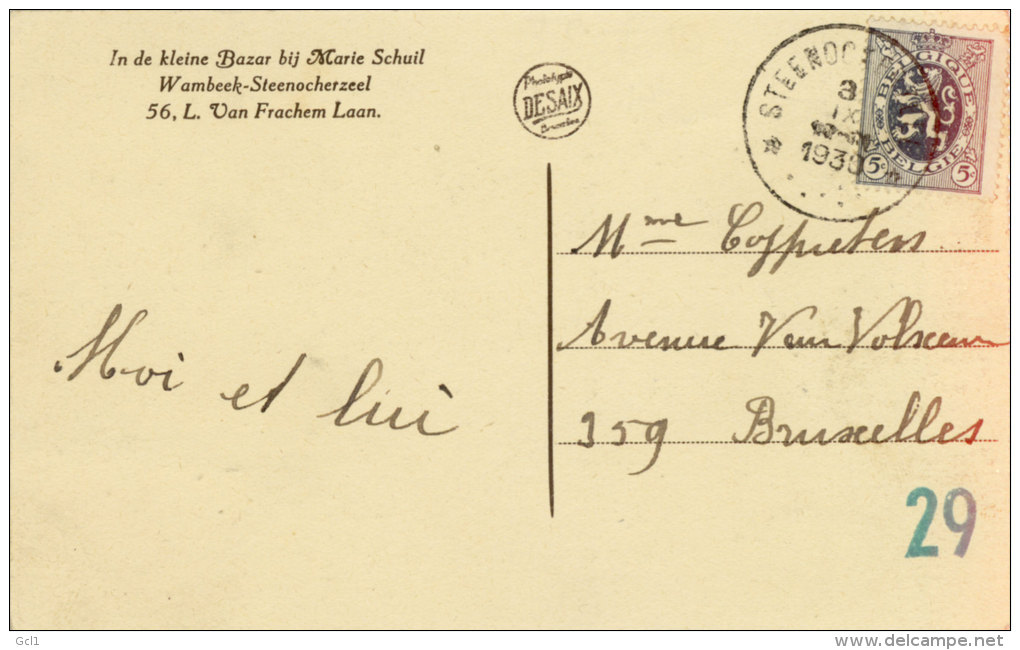 In de kleine Bazar bij Marie Schuil
Wambeek-Steenocherzeel
56, L. Van Frachem Laan.
Phototypie
DESAIX
Bruxelles
STEENOC
3
IX
1930
BELGIQUE
BELGIE
5c 5c
Mme Coppieters
Avenue Van Volxem
359 Bruxelles
Moi et lui
29
Gcl1
http://gcl1.delcampe.net